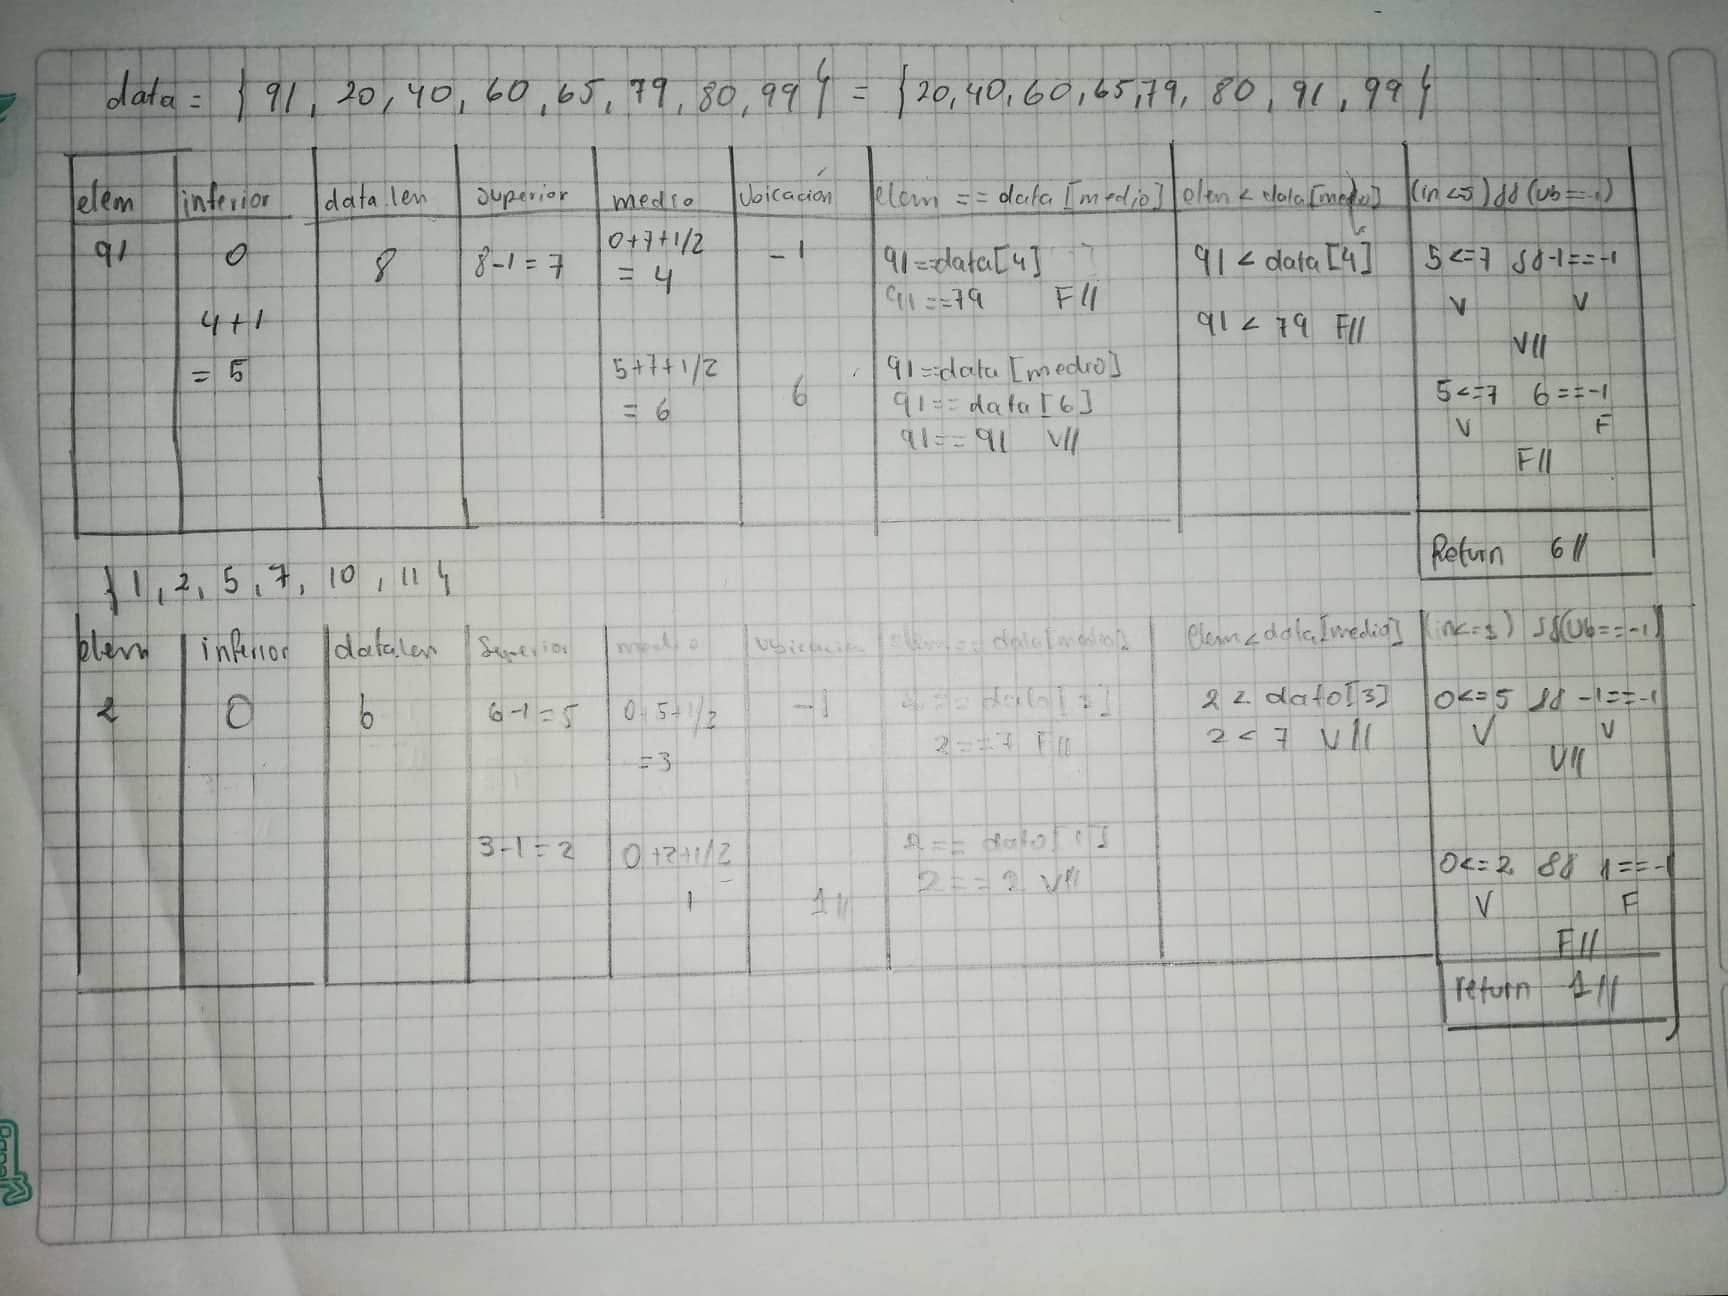 data = { 91, 20, 40, 60, 65, 79, 80, 99 } = { 20, 40, 60, 65, 79, 80, 91, 99 }
elem inferior data.len superior medio Ubicación elem == data [medio] elem < data[medio] (in<=s) && (ub==-1)
91 0 8 8-1=7 0+7+1/2 -1 91==data[4] 91 < data[4] 5<=7 && -1==-1
= 4 91==79 F// V V
4+1 91 < 79 F// V//
= 5 5+7+1/2 6 91==data [medio] 5<=7 6==-1
= 6 91== data [6] V F
91==91 V// F//
Return 6//
{ 1, 2, 5, 7, 10, 11 }
elem inferior data.len Superior medio Ubicacia elem == data[medio] elem < data[medio] (in<=s) && (Ub==-1)
2 0 6 6-1=5 0+5+1/2 -1 2 == dato[3] 2 < dato[3] 0<=5 && -1==-1
=3 2==7 F// 2 < 7 V// V V
V//
3-1=2 0+2+1/2 2 == dato[1] 0<=2 && 1==-1
1 1// 2==2 V// V F
F//
return 1//